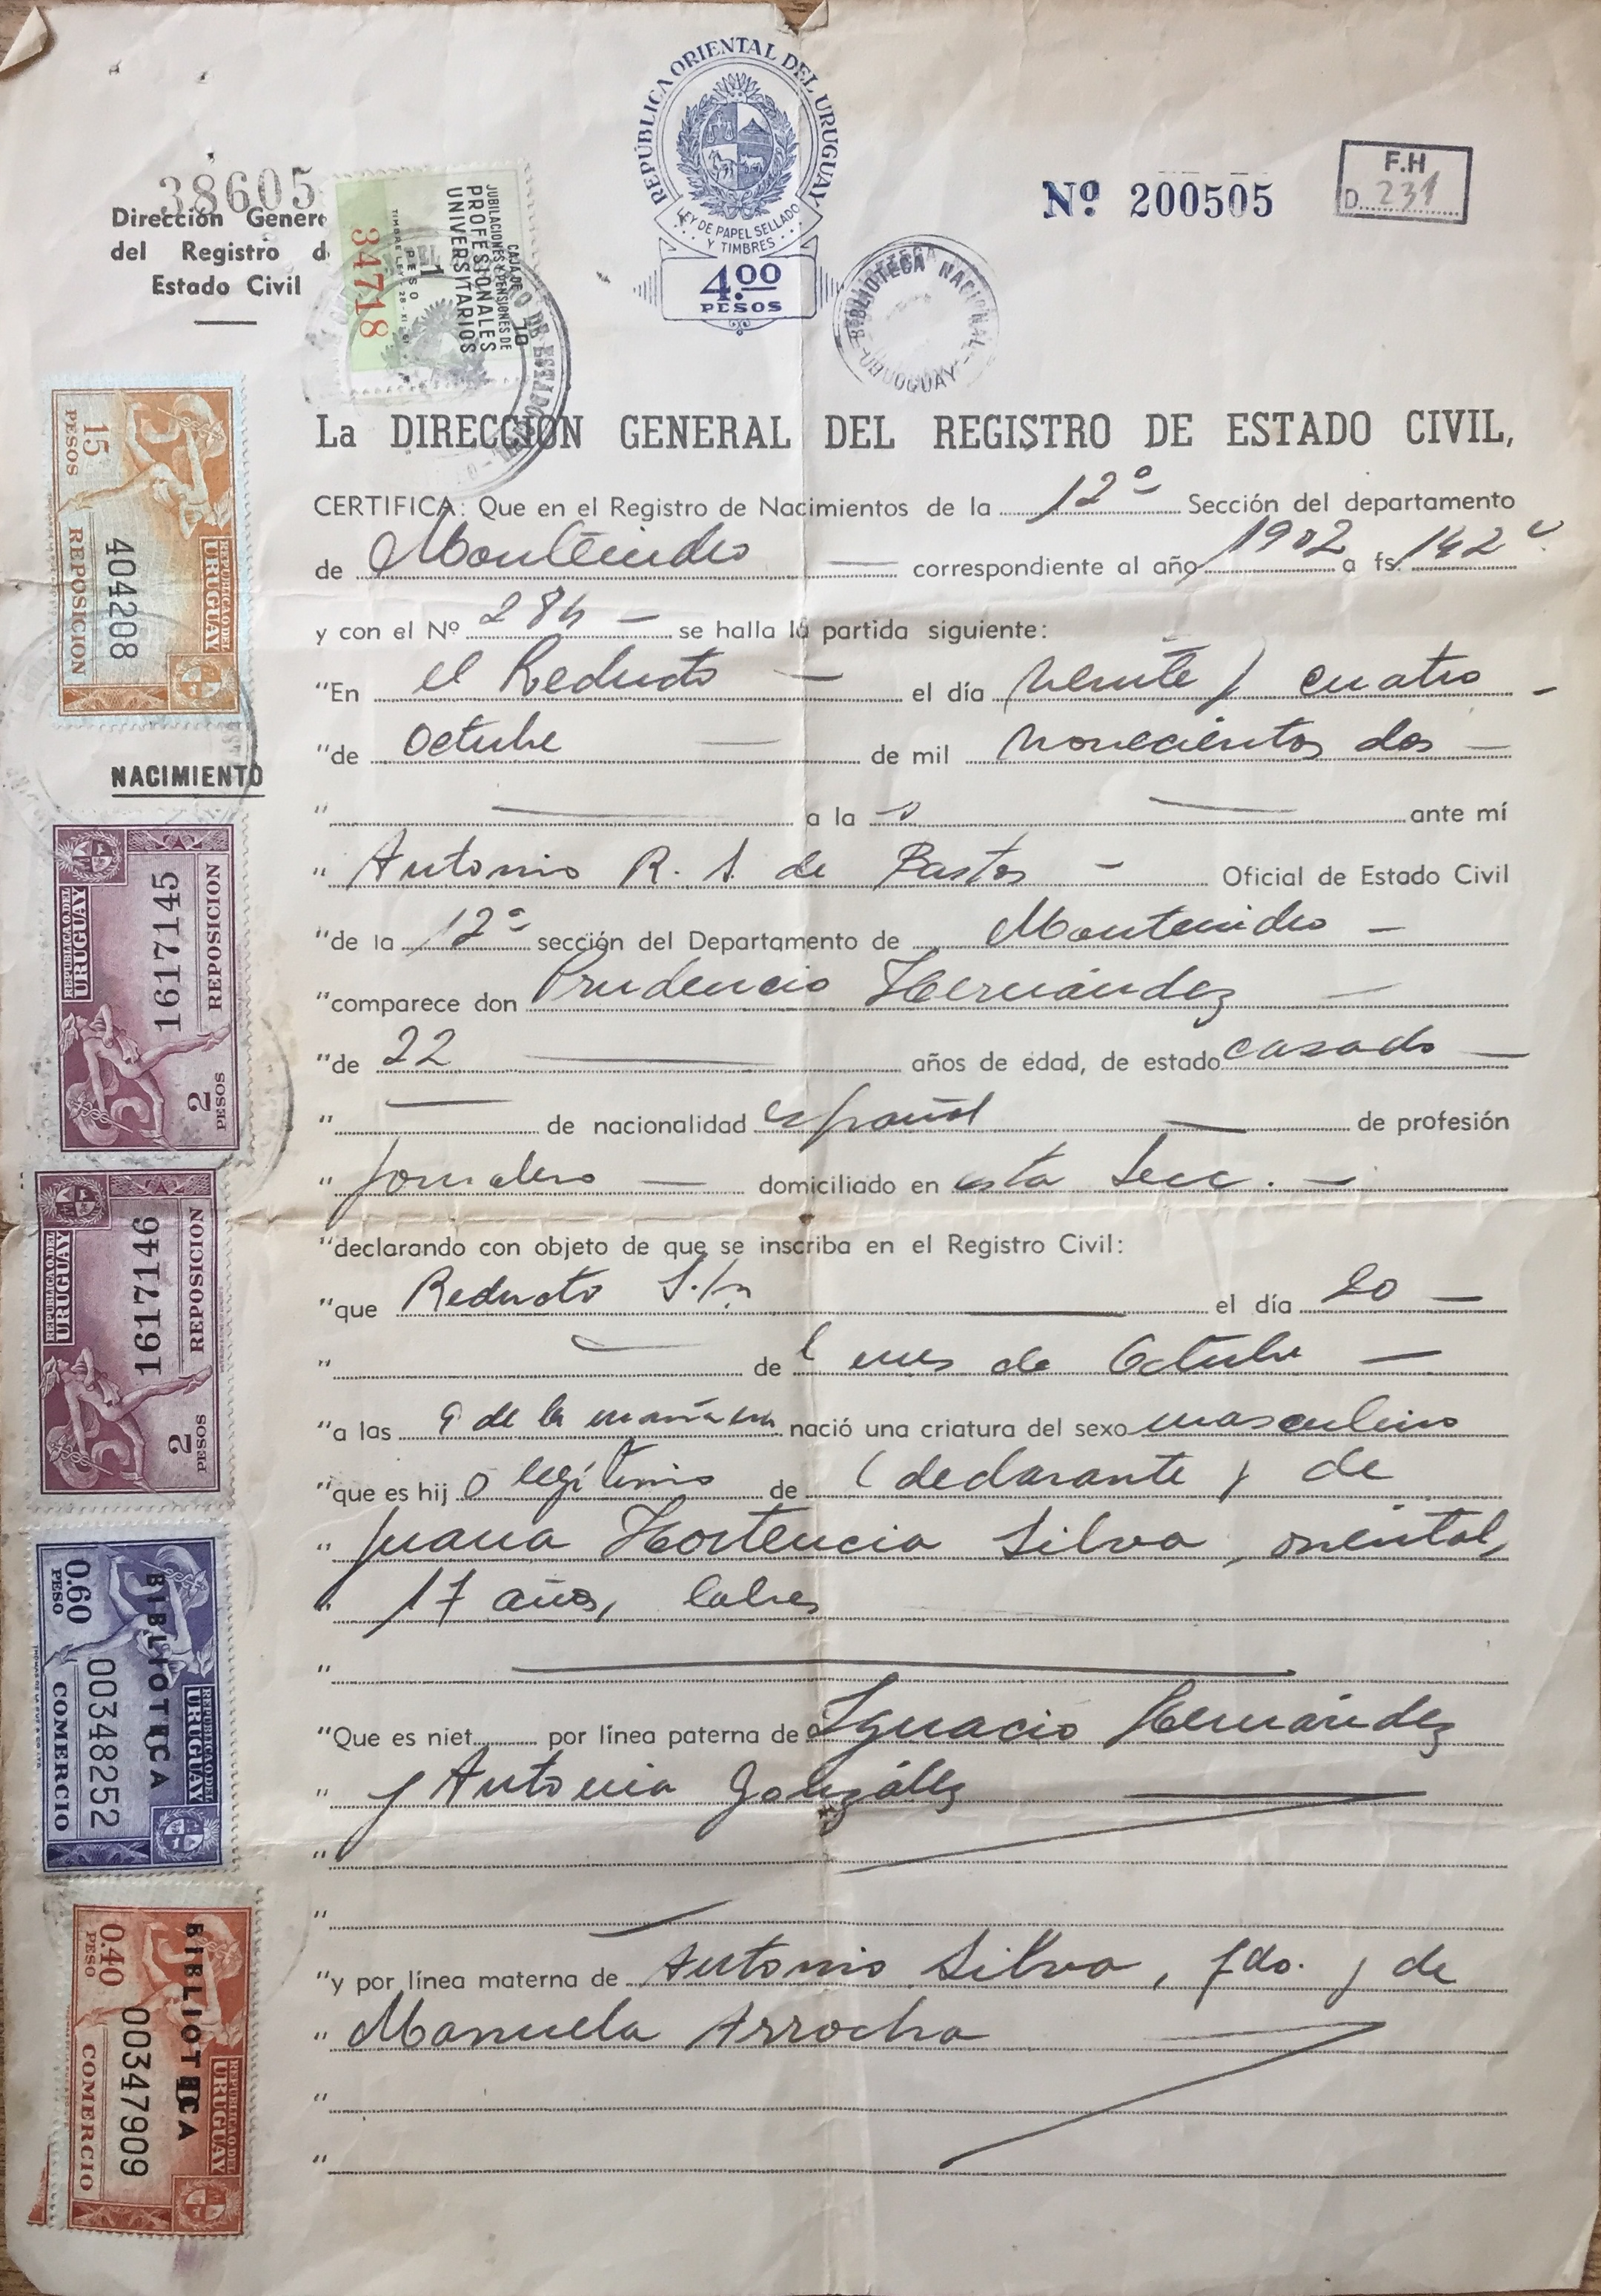 REPÚBLICA ORIENTAL DEL URUGUAY
LEY DE PAPEL SELLADO
Y TIMBRES
4.00
PESOS
38605
Dirección Gener
del Registro d
Estado Civil
CAJA DE
JUBILACIONES Y PENSIONES DE
PROFESIONALES
UNIVERSITARIOS
1
PESO
34718
Nº 200505
F.H
D. 231
BIBLIOTECA NACIONAL
URUGUAY
La DIRECCION GENERAL DEL REGISTRO DE ESTADO CIVIL,
CERTIFICA: Que en el Registro de Nacimientos de la 12ª Sección del departamento
de Montevideo correspondiente al año 1902 a fs. 142
y con el Nº 284 se halla la partida siguiente:
"En el Reducto el día veinte y cuatro
"de Octubre de mil novecientos dos
" a la s ante mí
" Antonio R. S. de Bastos Oficial de Estado Civil
"de la 12ª sección del Departamento de Montevideo
"comparece don Prudencio Hernández
"de 22 años de edad, de estado casado
" de nacionalidad español de profesión
" jornalero domiciliado en esta Secc.
"declarando con objeto de que se inscriba en el Registro Civil:
"que Reducto S./n el día 20
" del mes de Octubre
"a las 9 de la mañana nació una criatura del sexo masculino
"que es hij o legítimo de (declarante y de
" Juana Hortencia Silva, oriental,
" 17 años, labres
"
"Que es niet por línea paterna de Ignacio Hernández
" y Antonia González
"
"
"y por línea materna de Antonio Silva, fdo. y de
" Manuela Arrocha
"
"
15
PESOS
REPUBLICA O. DEL
URUGUAY
404208
REPOSICION
NACIMIENTO
REPUBLICA O. DEL
URUGUAY
1617145
REPOSICION
2
PESOS
REPUBLICA O. DEL
URUGUAY
1617146
REPOSICION
2
PESOS
0.60
PESO
BIBLIOTECA
REPUBLICA O. DEL
URUGUAY
00348252
COMERCIO
0.40
PESO
BIBLIOTECA
REPUBLICA O. DEL
URUGUAY
00347909
COMERCIO